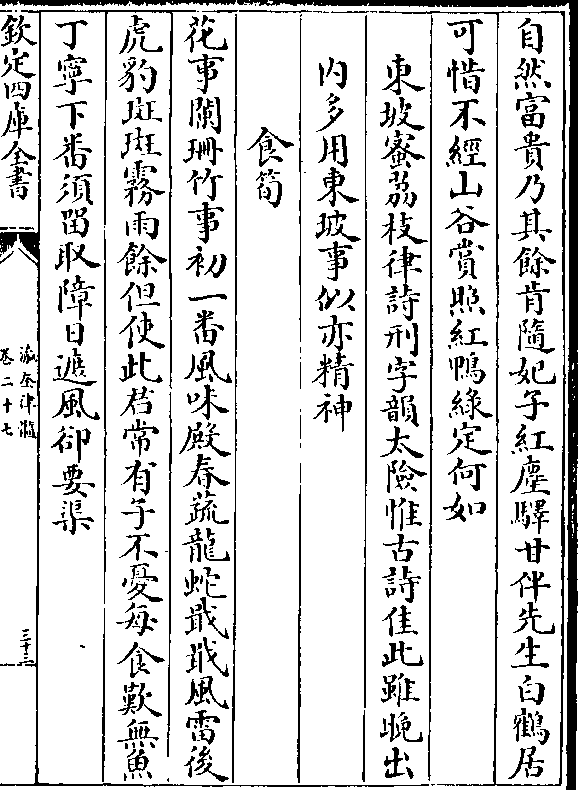 自然富貴乃其餘肯隨妃子紅塵驛甘伴先生白鶴居
可惜不經山谷賞照紅鴨緑定何如
東坡蜜荔枝律詩刑字韻太險惟古詩佳此雖晚出
内多用東坡事似亦精神
食筍
花事闌珊竹事初一番風味殿春蔬龍蛇戢戢風雷後
虎豹斑斑霧雨餘但使此君常有子不憂每食歎無魚
丁寧下番須留取障日遮風卻要渠
欽定四庫全書
瀛奎律髓
卷二十七
三十三